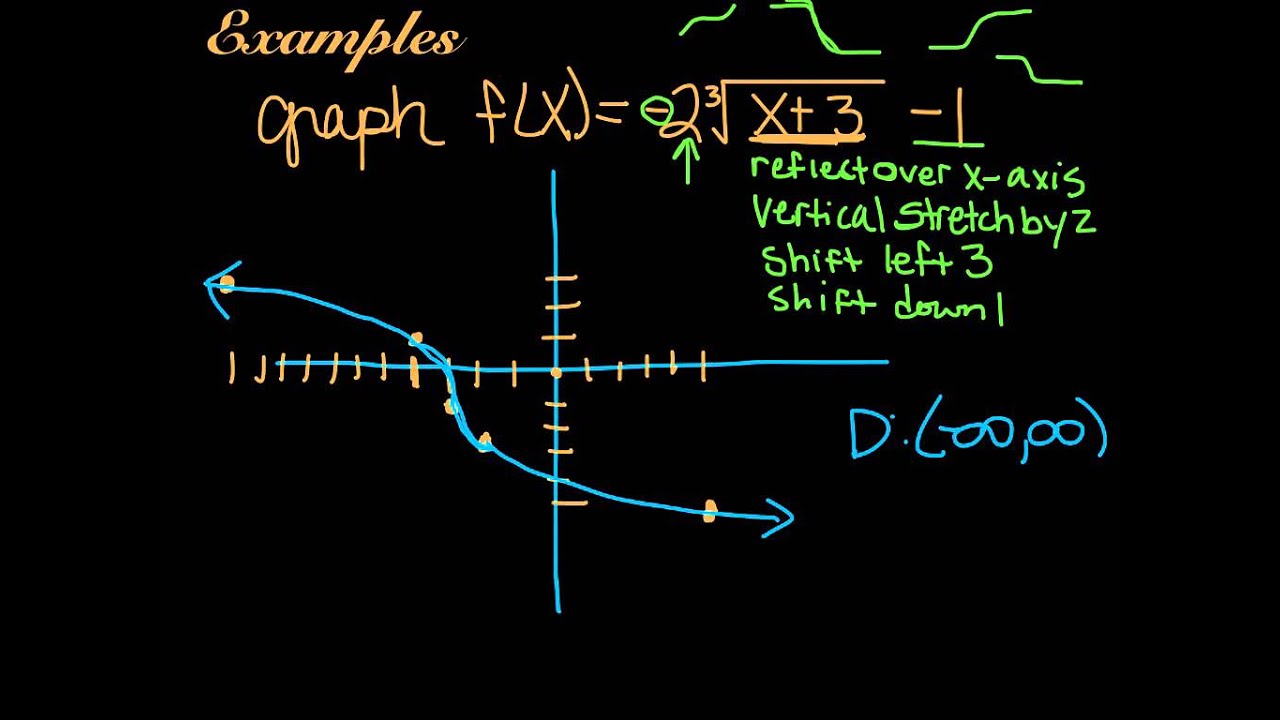 Examples
graph f(x) = -2∛(x+3) -1
reflect over x-axis
Vertical Stretch by 2
Shift left 3
Shift down 1
D: (-∞,∞)